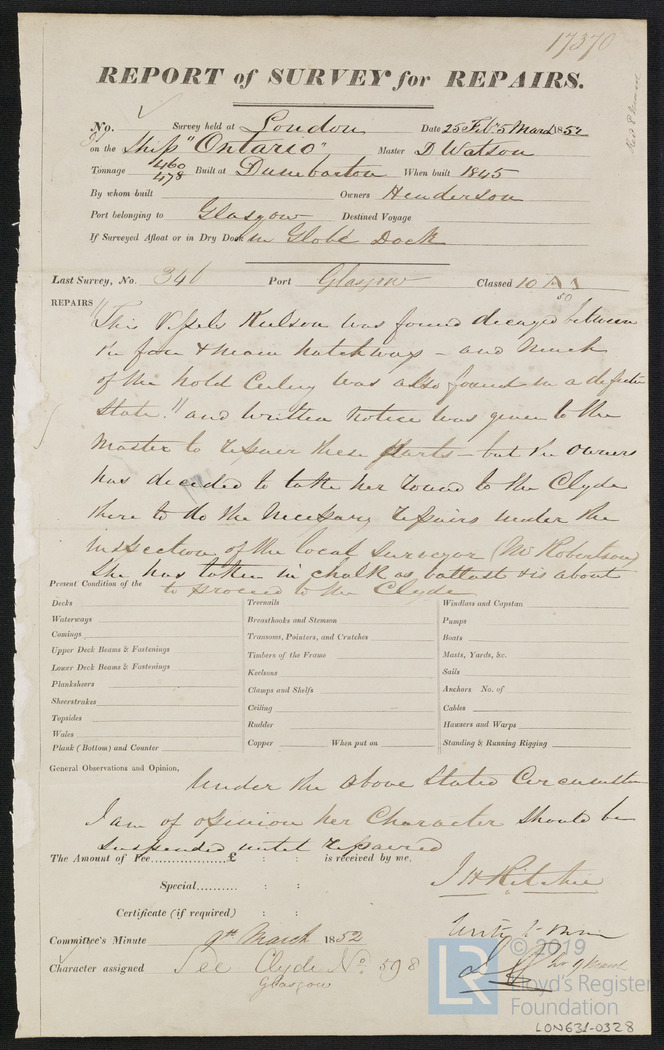 17370
REPORT of SURVEY for REPAIRS.
No. Survey held at London Date 25 Feb. 5 March 1852
on the Ship "Ontario" Master D Watson
Tonnage 460 478 Built at Dumbarton When built 1845
By whom built Owners Henderson
Port belonging to Glasgow Destined Voyage
If Surveyed Afloat or in Dry Dock in Globe Dock
Last Survey, No. 346 Port Glasgow Classed 10 A1
50
REPAIRS "This Vessels Keelson was found decayed between
the fore & main hatchways - and much
of the hold Ceiling was also found in a defective
State." and written Notice was given to the
Master to repair these parts - but the owners
has decided to take her round to the Clyde
there to do the Necessary repairs under the
inspection of the local Surveyor (Mr Robertson)
She has taken in chalk as ballast & is about
Present Condition of the to proceed to the Clyde
Decks Treenails Windlass and Capstan
Waterways Breasthooks and Stemson Pumps
Comings Transoms, Pointers, and Crutches Boats
Upper Deck Beams & Fastenings Timbers of the Frame Masts, Yards, &c.
Lower Deck Beams & Fastenings Keelsons Sails
Planksheers Clamps and Shelfs Anchors No. of
Sheerstrakes Ceiling Cables
Topsides Rudder Hawsers and Warps
Wales Copper When put on Standing & Running Rigging
Plank (Bottom) and Counter
General Observations and Opinion, Under the above Stated Circumstances
I am of opinion her Character should be
suspended until repaired
The Amount of Fee.................£ : : is received by me,
J H Ritchie
Special.......... : :
Certificate (if required) : :
Committee's Minute 9th March 1852
Character assigned See Clyde No. 598
Glasgow
© 2019
LR
Lloyd's Register
Foundation
LON631-0328